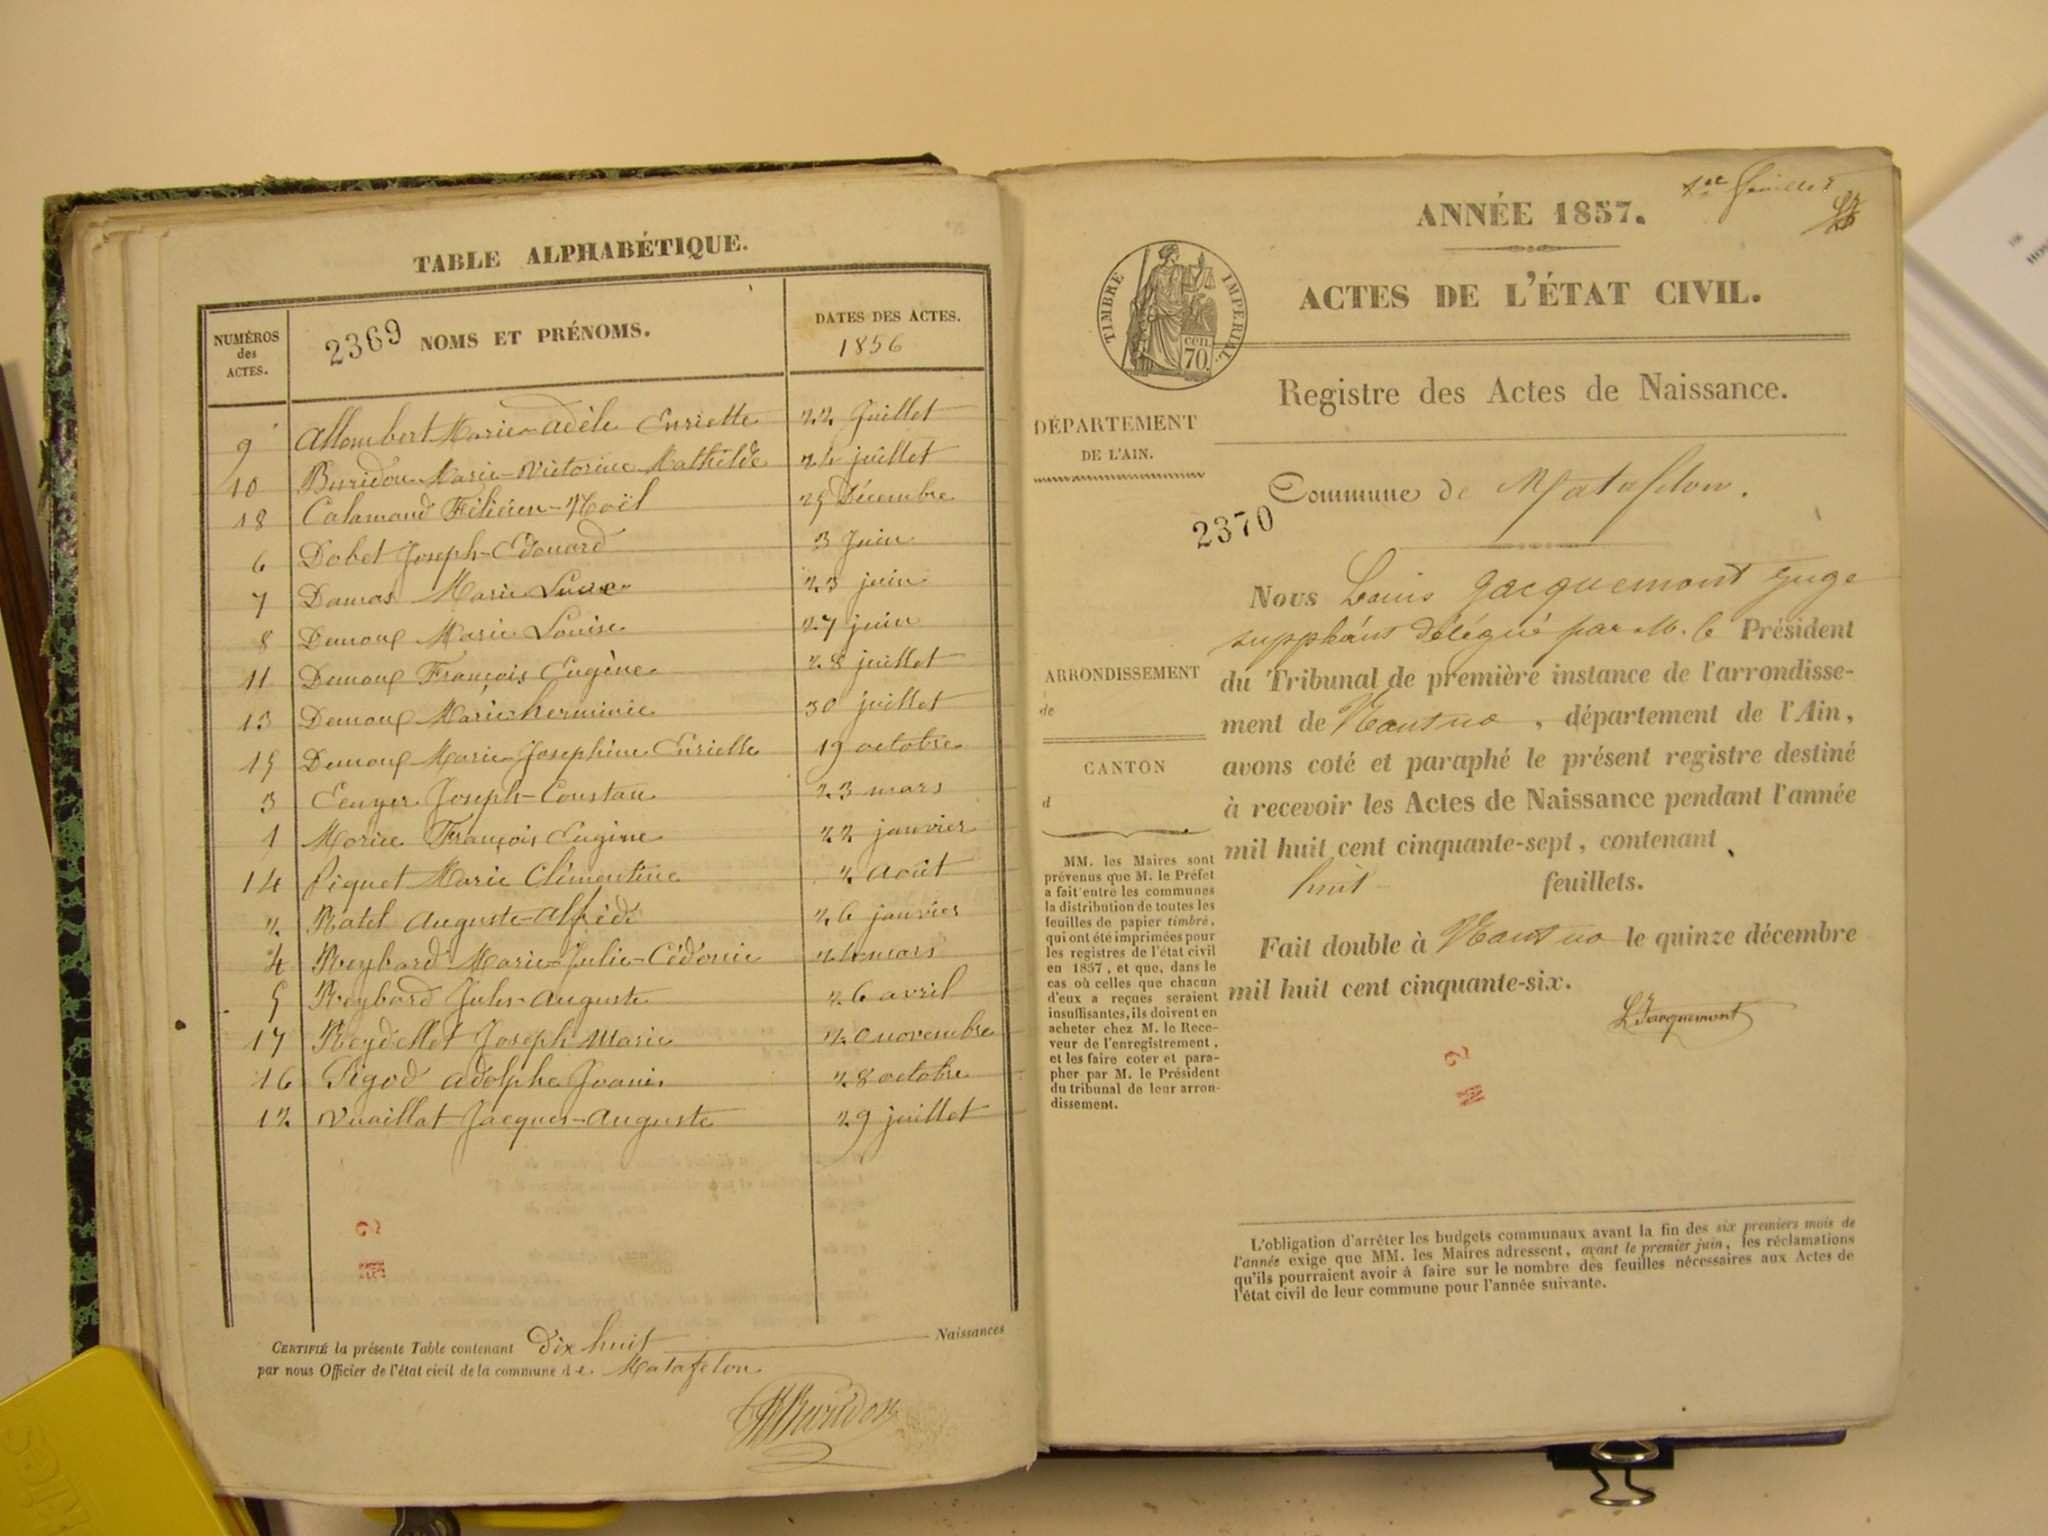 TABLE ALPHABÉTIQUE.
NUMÉROS des ACTES.
2369 NOMS ET PRÉNOMS.
DATES DES ACTES.
1856
9 Allombert Marie-Adèle Enriette 22 Juillet
10 Buridon Marie-Victorine Mathilde 24 juillet
18 Calamand Félicien-Noël 25 Décembre
6 Dobet Joseph-Edouard 3 Juin
7 Damas Marie 23 juin
8 Demoux Marie Louise 27 juin
11 Demoux François Eugène 28 juillet
13 Demoux Marie herminie 30 juillet
15 Demoux Marie-Josephine Enriette 19 octobre
3 Joseph-Constan 23 mars
1 Morice François Eugène 22 janvier
14 Piquet Marie Clémentine 2 Août
2 Ratel Auguste-Alfrède 26 janvier
4 Reybard Marie-Julie-Cédonie 24 mars
5 Reybard Jules-Auguste 26 avril
17 Reydellet Joseph Marie 20 novembre
16 Sigod Adolphe 28 octobre
12 Vuaillat Jacques-Auguste 29 juillet
CERTIFIÉ la présente Table contenant Dix huit Naissances
par nous Officier de l'état civil de la commune de Matafelon
Buridon
1er feuillet
ANNÉE 1857.
TIMBRE IMPÉRIAL
cen. 70.
ACTES DE L'ÉTAT CIVIL.
Registre des Actes de Naissance.
DÉPARTEMENT
DE L'AIN.
Commune de Matafelon.
2370
Nous Louis Jacquemont Juge
suppléant délégué par M. le Président
du Tribunal de première instance de l'arrondisse-
ment de Nantua, département de l'Ain,
avons coté et paraphé le présent registre destiné
à recevoir les Actes de Naissance pendant l'année
mil huit cent cinquante-sept, contenant
huit feuillets.
Fait double à Nantua le quinze décembre
mil huit cent cinquante-six.
Jacquemont
ARRONDISSEMENT
de
CANTON
d
MM. les Maires sont
prévenus que M. le Préfet
a fait entre les communes
la distribution de toutes les
feuilles de papier timbré,
qui ont été imprimées pour
les registres de l'état civil
en 1857, et que, dans le
cas où celles que chacun
d'eux a reçues seraient
insuffisantes, ils doivent en
acheter chez M. le Rece-
veur de l'enregistrement,
et les faire coter et para-
pher par M. le Président
du tribunal de leur arron-
dissement.
L'obligation d'arrêter les budgets communaux avant la fin des six premiers mois de
l'année exige que MM. les Maires adressent, avant le premier juin, les réclamations
qu'ils pourraient avoir à faire sur le nombre des feuilles nécessaires aux Actes de
l'état civil de leur commune pour l'année suivante.